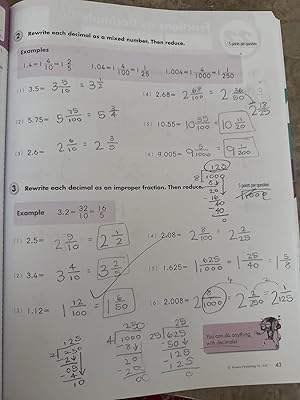 Fractions Decimals
2 Rewrite each decimal as a mixed number. Then reduce.
5 points per question
Examples
1.4 = 1 4/10 = 1 2/5 1.04 = 1 4/100 = 1 1/25 1.004 = 1 4/1000 = 1 1/250
(1) 3.5 = 3 5/10 = 3 1/2
(4) 2.68 = 2 68/100 = 2 36/50
2 18/25
(2) 5.75 = 5 75/100 = 5 3/4
(5) 10.55 = 10 55/100 = 10 11/20
(3) 2.6 = 2 6/10 = 2 3/5
(6) 9.005 = 9 5/1000 = 9 1/200
3 Rewrite each decimal as an improper fraction. Then reduce.
5 points per question
Example 3.2 = 32/10 = 16/5
125
8 1000
8↓
20
16
40
40
0
(1) 2.5 = 2 5/10 = 2 1/2
(4) 2.08 = 2 8/100 = 2 2/25
(2) 3.4 = 3 4/10 = 3 2/5
(5) 1.625 = 1 625/1,000 = 1 25/40 = 1 5/8
(3) 1.12 = 1 12/100 = 1 6/50
(6) 2.008 = 2 8/1000 = 2 2/250 = 2 1/125
125
2 250
2↓
05
04
10
250
4 1000
8↓
20
20
00
25
25 625
50↓
125
125
0
You can do anything
with decimals!
© Kumon Publishing Co., Ltd. 43